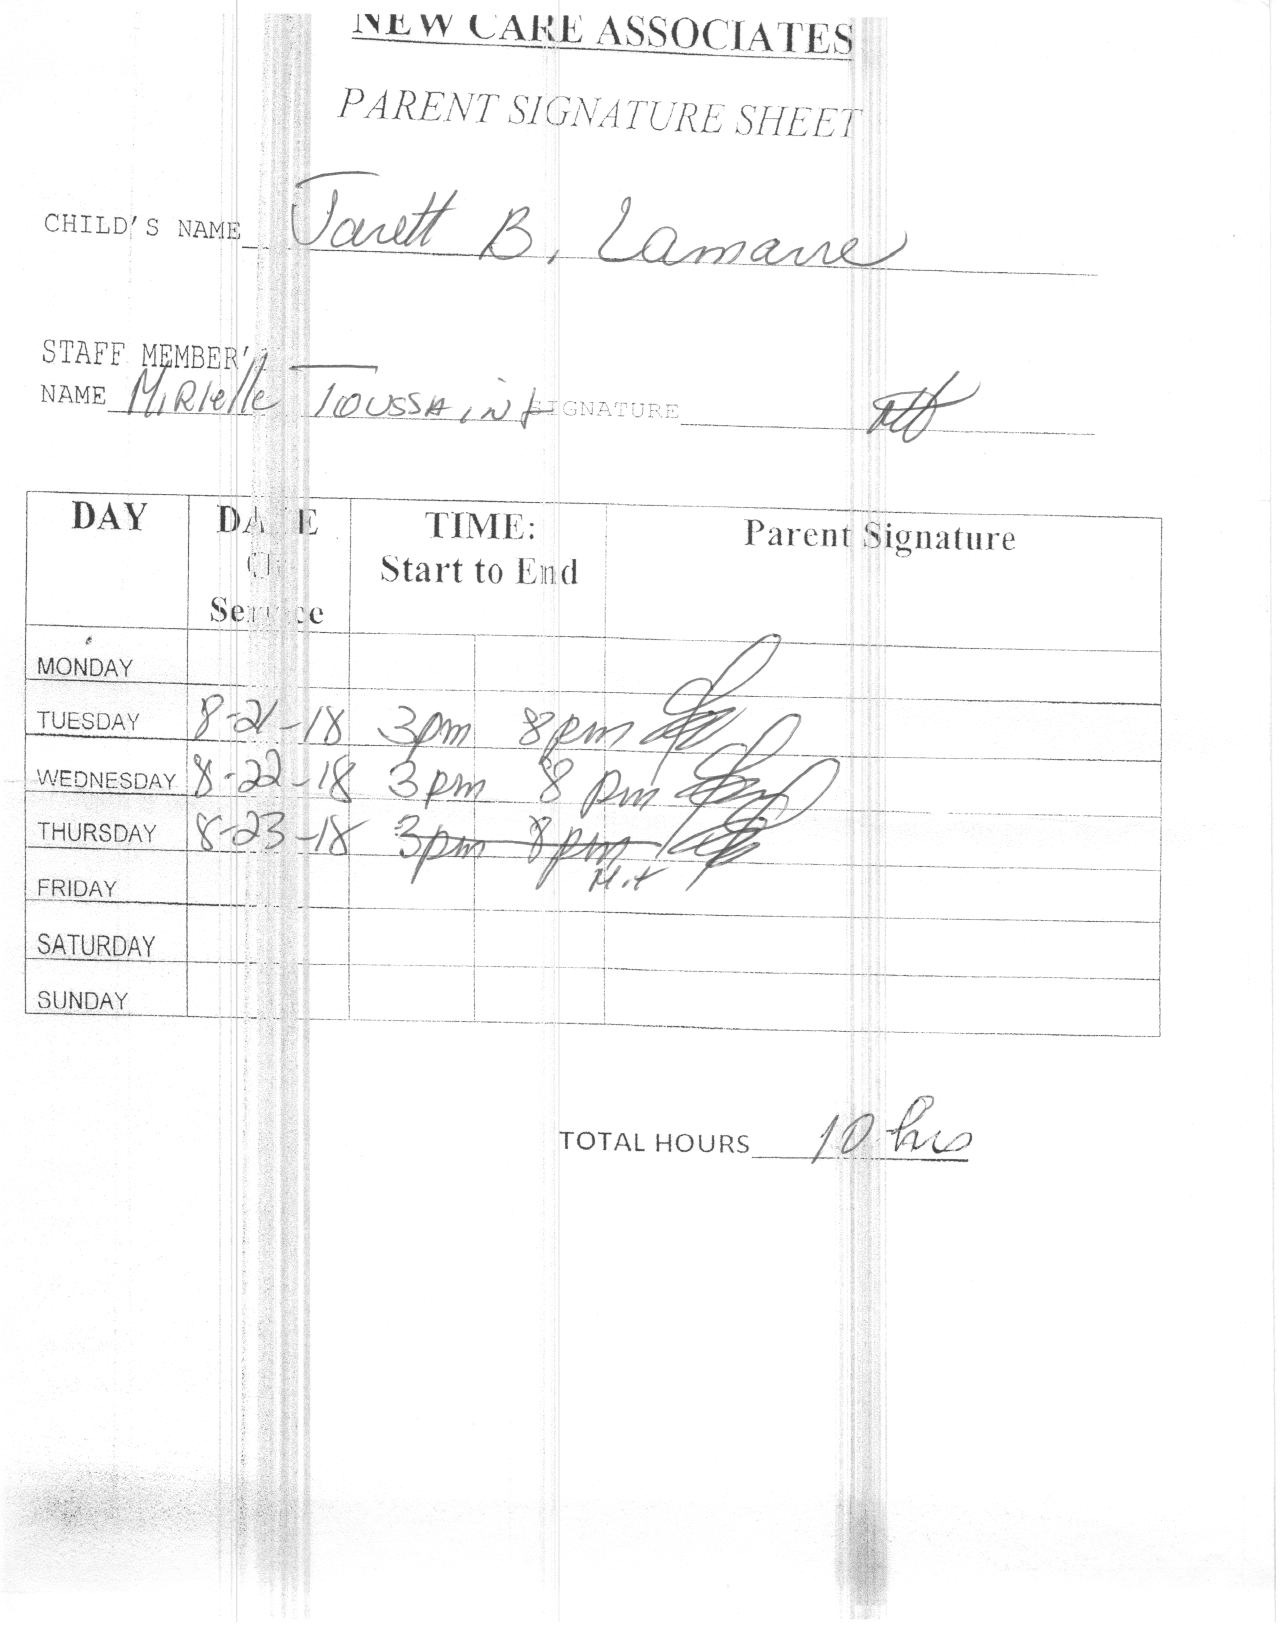 NEW CARE ASSOCIATES
PARENT SIGNATURE SHEET
CHILD'S NAME Jarett B. Lamarre
STAFF MEMBER'S
NAME Mirielle Toussaint SIGNATURE
DAY DATE Of Service TIME: Start to End Parent Signature
MONDAY
TUESDAY 8-21-18 3pm 8pm
WEDNESDAY 8-22-18 3pm 8 pm
THURSDAY 8-23-18 3pm 8pm
M.t
FRIDAY
SATURDAY
SUNDAY
TOTAL HOURS 10 hrs